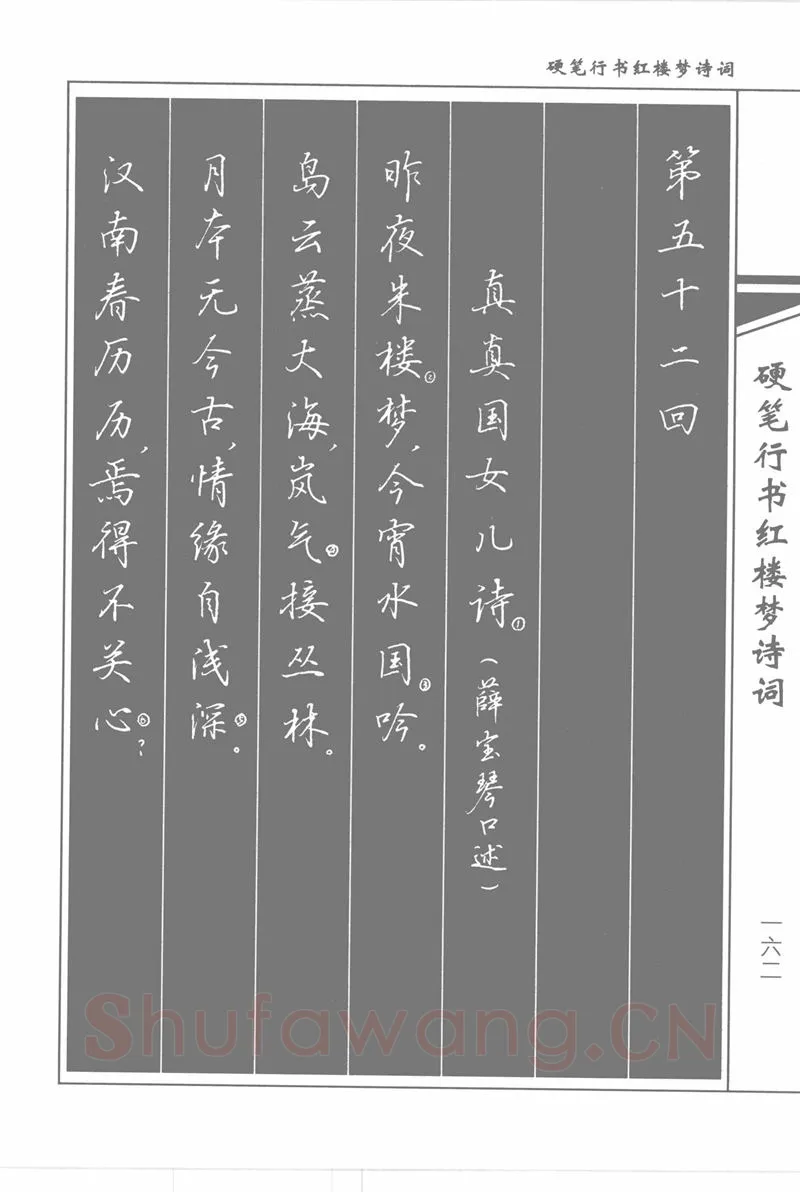 硬笔行书红楼梦诗词
第五十二回
真真国女儿诗①(薛宝琴口述)
昨夜朱楼②梦,今宵水国③吟。
岛云蒸大海,岚气④接丛林。
月本无今古,情缘自浅深⑤。
汉南春历历,焉得不关心⑥?
硬笔行书红楼梦诗词
一六二
Shufawang.CN